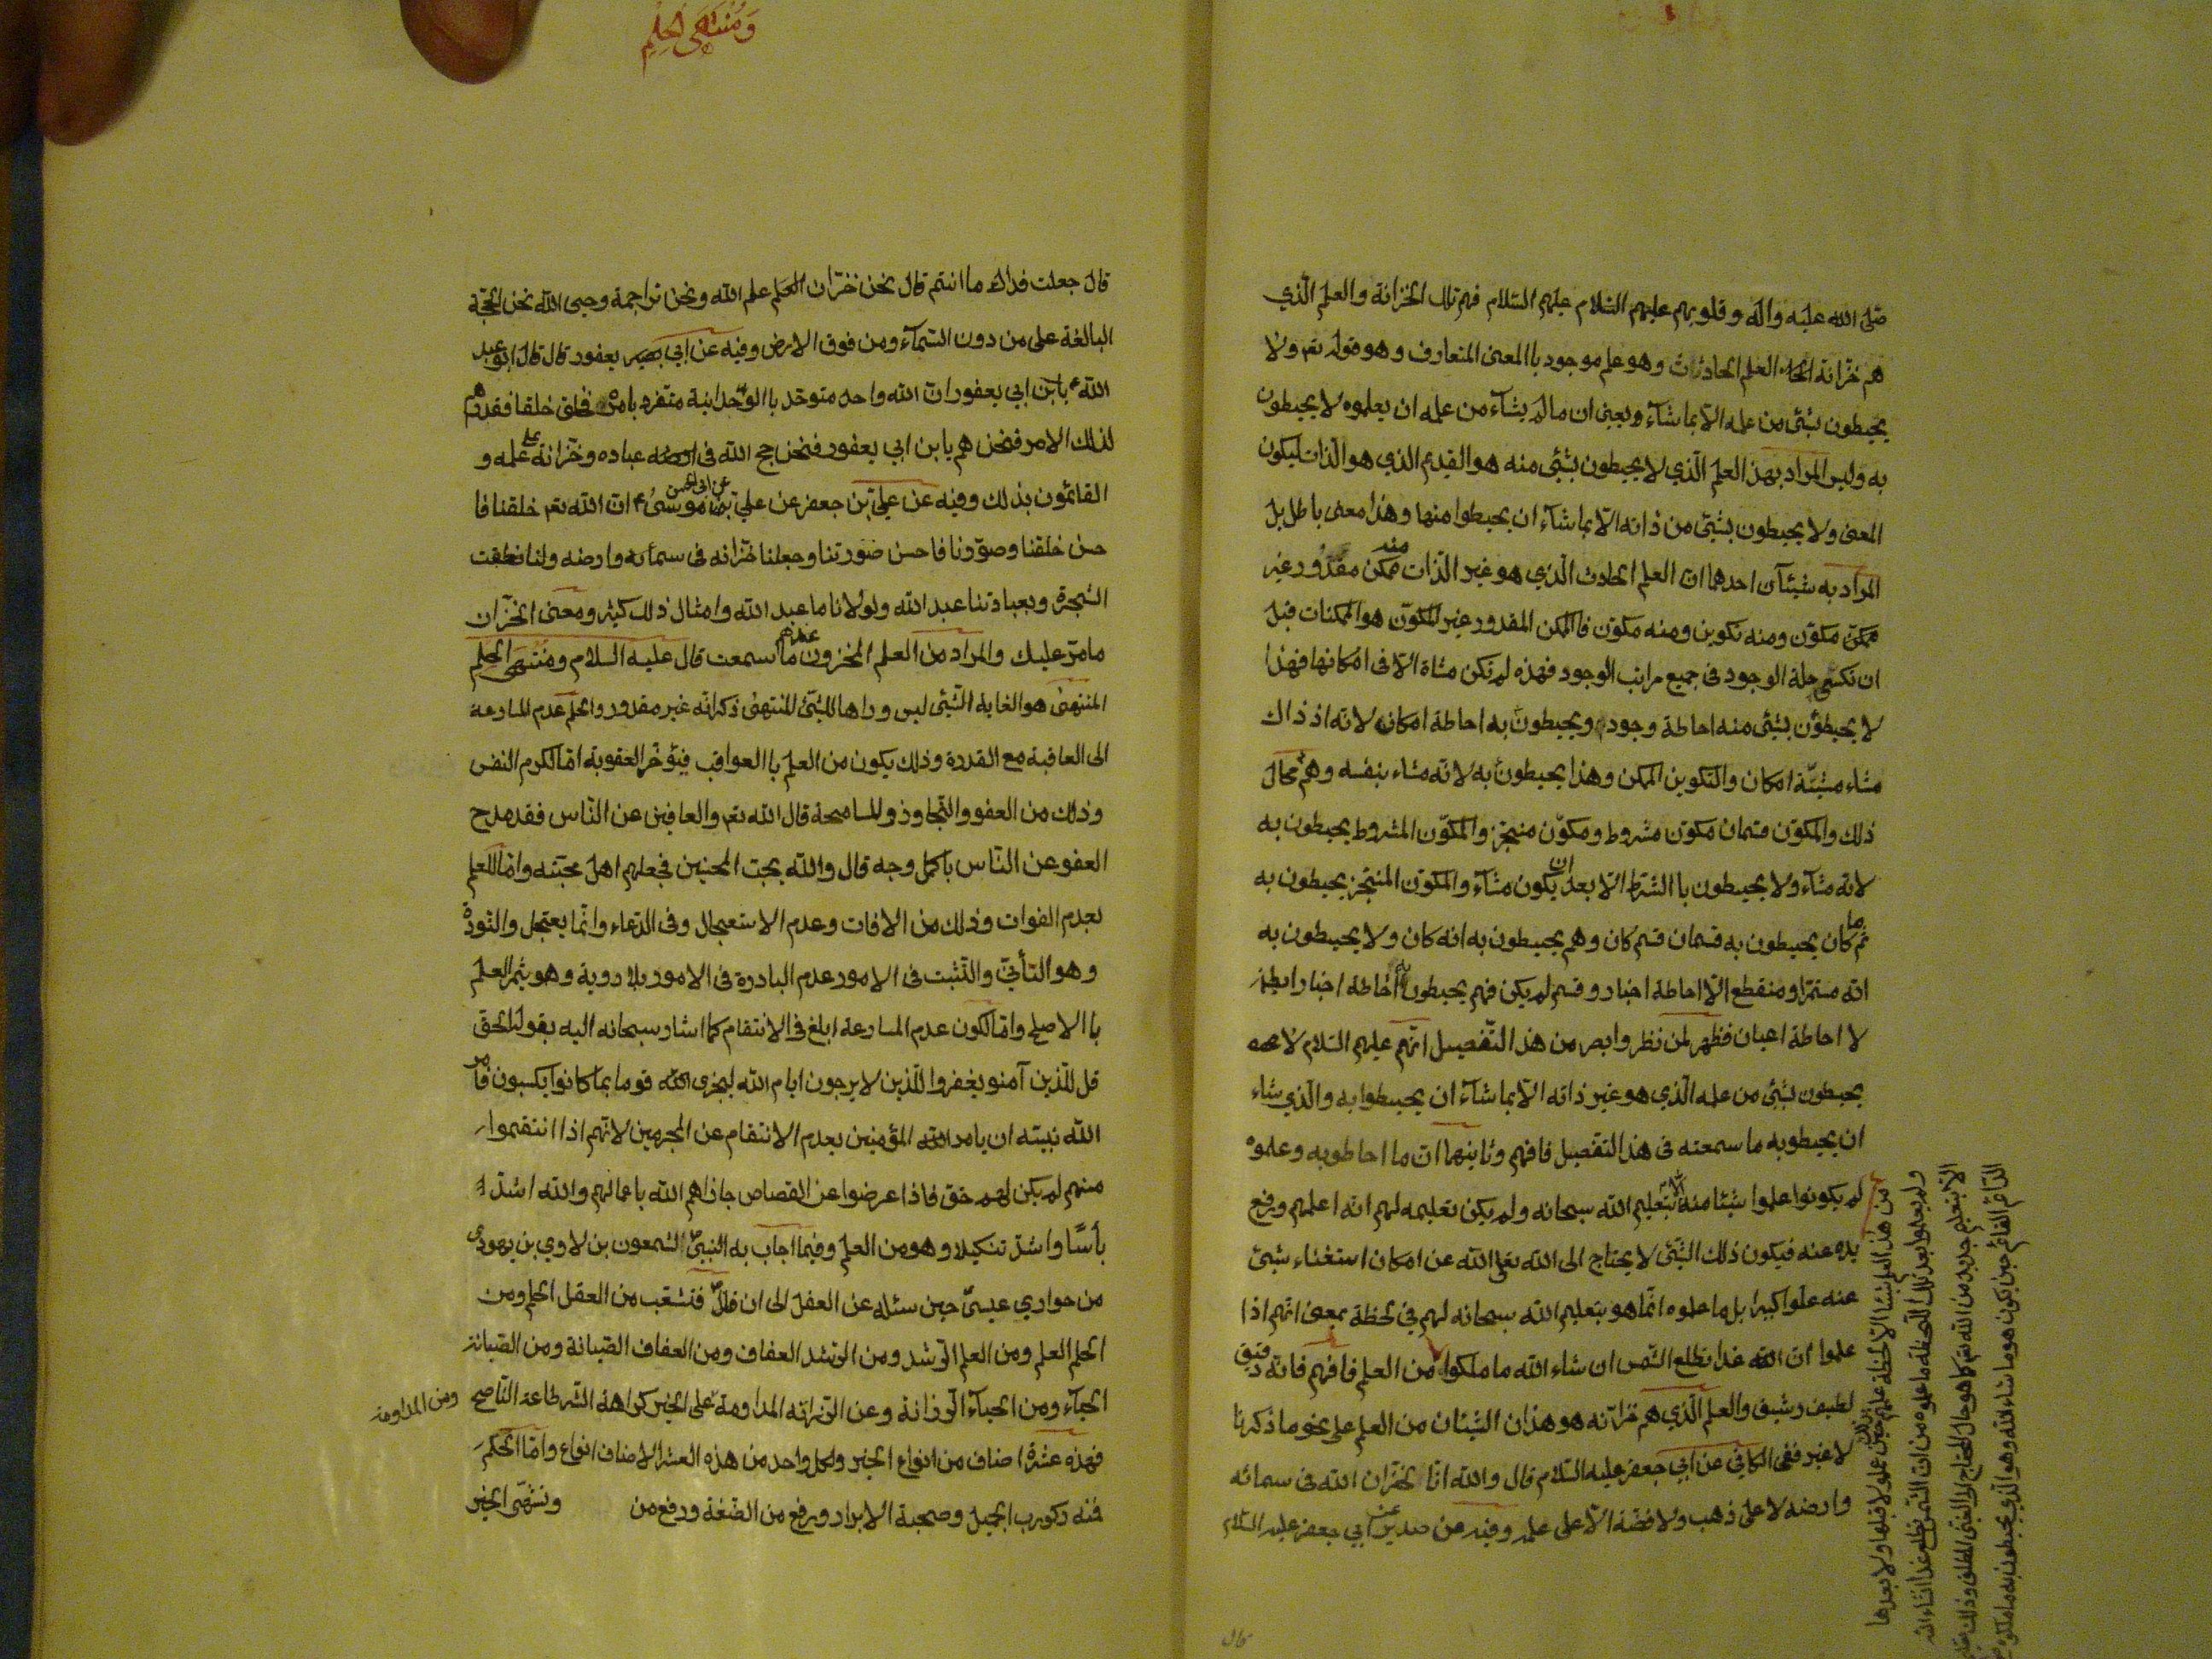 صلى الله عليه واله وقلوبهم عليهم السلام عليهم السلام فهم تلك الخزانة والعلم الذي
هم خزانة العلم الحادث وهو علم موجود باالمعنى المتعارف وهو قوله تعم ولا
يحيطون بشئ من علمه الا بما شآء ويعني ان ما لم يشآء من علمه ان يعلموه لا يحيطون
به وليس المراد بهذ العلم الذي لا يحيطون بشئ منه هو القديم الذي هو الذات ليكون
المعنى ولا يحيطون بشئ من ذاته الا بما شآء ان يحيطوا منها وهذا معنى باطل بل
المراد به شيئآن احدهما ان العلم الحادث الذي هو غير الذات منه ممكن مقدور غير
ممكن مكون ومنه تكوين ومنه مكون فاالمكن المقدور غير المكون هو الممكنات قبل
ان تكسى حلة الوجود في جميع مراتب الوجود فهذه لم تكن مشاة الا في امكانها فهذا
لا يحيطون بشئ منه احاطة وجود ويحيطون به احاطة امكان لانه اذ ذاك
مشاء مشيئة امكان والتكوين الممكن وهذا يحيطون به لانه مشاء بنفسه وهم محال
ذلك والمكون قسمان مكون مشروط ومكون منجز والمكون المشروط يحيطون به
لانه مشآء ولا يحيطون باالشرط الا بعد ان يكون مشآء والمكون المنجز يحيطون به
ثم ما كان يحيطون به قسمان قسم كان وهم يحيطون به انه كان ولا يحيطون به
انه مستمر او منقطع الا احاطة اخبار وقسم لم يكن فهم يحيطون به احاطة اخبار ايظا
لا احاطة اعيان فظهر لمن نظر وابصر من هذ التفصيل انهم عليهم السلام لا
يحيطون بشئ من علمه الذي هو غير ذاته الا بما شآء ان يحيطوا به والذي شاء
ان يحيطو به ما سمعته في هذ التفصيل فافهم وثانيهما ان ما احاطو به وعلموه
لم يكونوا علموا شيئا منه الا بتعليم الله سبحانه ولم يكن تعليمه لهم انه اعلمهم ورفع
يده عنه فيكون ذلك الشئ لا يحتاج الى الله تعلى الله عن امكان استغناء شئ
عنه علوا كبيرا بل ما علموه انما هو بتعليم الله سبحانه لهم في لحظة بمعنى انهم اذا
علموا ان غدا تطلع الشمس ان شاء الله ما ملكوا من العلم فافهم فانه دقيق
لطيف رشيق والعلم الذي هم خزانه هو هذان الشيئان من العلم على نحو ما ذكرنا
لا غير ففي الكافي عن ابي جعفر عليه السلام قال والله انا لخزان الله في سمائه
وارضه لا على ذهب ولا فضة الا على علمه وفيه عن سدير عن ابي جعفر عليه السلام
من هذ العلم شيئا الا لحظة علمهم حين علمو لا قبلها ولا بعدها
ولم يعلموا بعد تلك اللحظة ما علموه من ان الشمس تطلع غدا انشاء الله
الا بتعليم جديد من الله كما هو حال المحتاج الى الغني المطلق وذلك
الدائم القائم حين يكون هو ما شاء الله وهو الذي يحيطون به ما ملكوه
قال
ومنتهى الحلم
قال جعلت فداك ما انتم قال نحن خزان العلم علم الله ونحن تراجمة وحي الله نحن الحجة
البالغة على من دون السمآء ومن فوق الارض وفيه عن ابي يعفور قال قال ابو عبد
الله ع يابن ابي يعفور ان الله واحد متوحد باالوحدانية متفرد بامره فخلق خلقا فقدرهم
لذلك الامر فنحن هم يابن ابي يعفور فنحن حجج الله في عباده وخزانه على علمه و
القائمون بذلك وفيه عن علي بن جعفر عن ابي الحسن موسى ع ان الله تعم خلقنا فا
حسن خلقنا وصورنا فاحسن صورتنا وجعلنا خزانه في سمائه وارضه ولنا نطقت
الشجرة وبعبادتنا عبد الله ولولانا ما عبد الله وامثال ذلك كثير ومعنى الخزان
ما مر عليك والمراد من العلم المخزون عندهم ما سمعت قال عليه السلام ومنتهى الحلم
المنتهى هو الغاية الشئ ليس وراها للشئ المنتهى ذكرانه غير مقدور والحلم عدم المسارعة
الى العاقبة مع القدرة وذلك يكون من العلم باالعواقب فيؤخر العقوبة اما لكرم النفس
وذلك من العفو والتجاوز والمسامحة قال الله تعم والعافين عن الناس فقد مدح
العفو عن الناس باكمل وجه قال والله يحب المحسنين فجعلهم اهل محبته واما للعلم
بعدم الفوات وذلك من الافات وعدم الاستعجال وفي الدعاء وانما يعتجل والتودة
وهو التأني والتثبت في الامور عدم البادرة في الامور بلا روية وهو ثمر العلم
باالاصلح واما لكون عدم المسارعة ابلغ في الانتقام كما اشار سبحانه اليه بقوله الحق
قل للذين آمنو يغفروا للذين لا يرجون ايام الله ليجزي قوما بما كانوا يكسبون فامر
الله نبيه ان يامر المؤمنين بعدم الانتقام عن المجرمين لانهم اذا انتقموا
منهم لم يكن لهم حق فاذا عرضوا عن القصاص جازاهم الله باعمالهم والله اشد
بأسا واشد تنكيلا وهو من العلم وفيما اجاب به النبي لشمعون بن لاوي بن يهودى
من حواري عيسى حين سئله عن العقل الى ان قال فتشعب من العقل الحلم ومن
الحلم العلم ومن العلم الرشد ومن الرشد العفاف ومن العفاف الصيانة ومن الصيانة
الحيآء ومن الحيآء الرزانة وعن الرزانه المداومة على الخير كراهة الشر طاعة الناصح
ومن المداومة
فهذه عشرة اصناف من انواع الخير ولكل واحد من هذه العشر الاصناف انواع واما الحلم
فمنه ركوب الجميل وصحبة الابرار ورفع من الضعة ورفع من وتشهى الخير